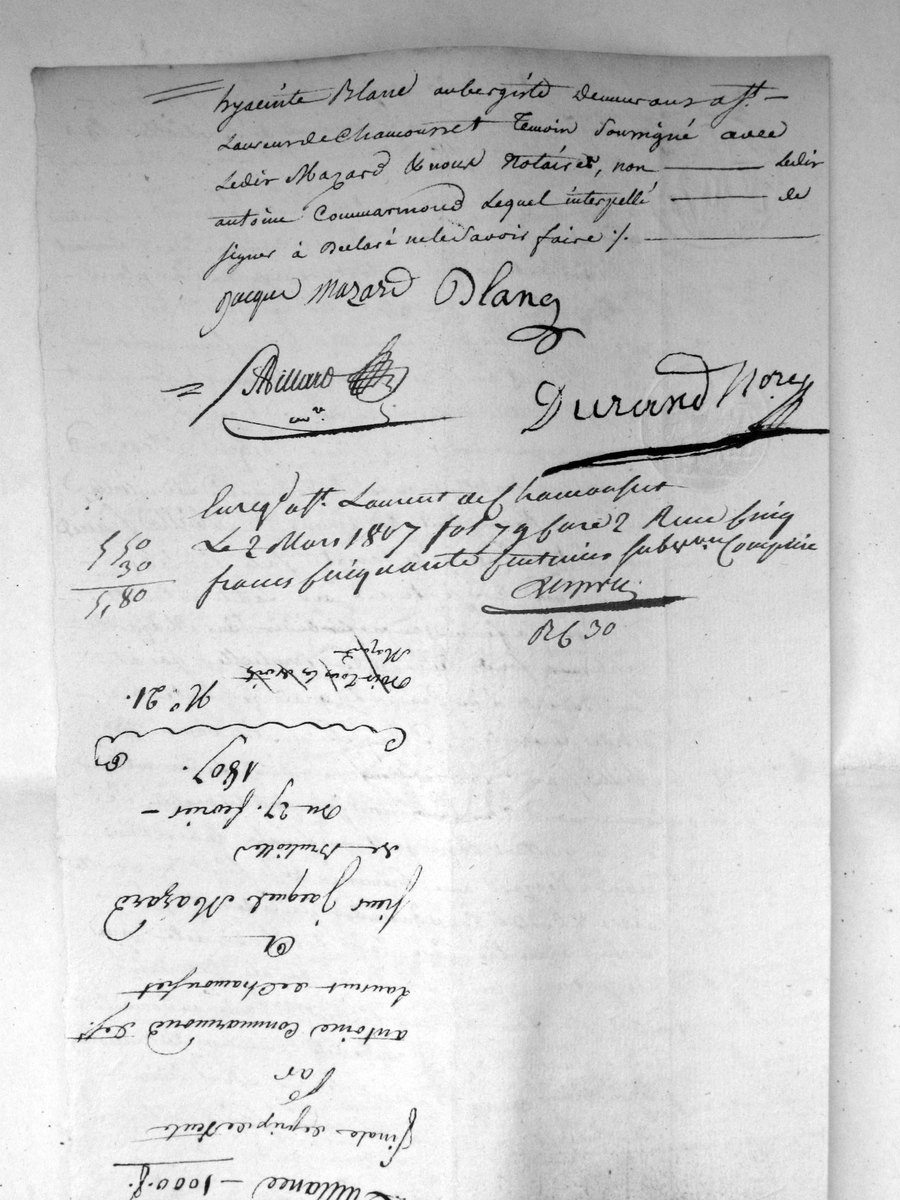 hyacinte Blanc aubergiste Demeurant a St.
Laurent de Chamousset Temoin Soussigné avec
Ledit Mazard & nous Notaires, non ——— Ledit
antoine Commarmond Lequel interpellé ——— de
signer à Declaré ne le Savoir faire ./. ———
Jacque Mazard Blanc
Durand Nore
Enregé a St. Laurent de Chamousset
Le 2 Mars 1807 fol 79 Case 2 Reçu Cinq
francs Cinquante Centimes Subvon Comprise
R 6 30
5,50
30
5,80
Mazard
N° 21.
1807.
Du 27. fevrier —
de Brulliolles
sieur Jacques Mazard
A
Laurent de Chamousset
antoine Commarmond de St.
Par
finale de prix de vente
Quittance — 1000 f.